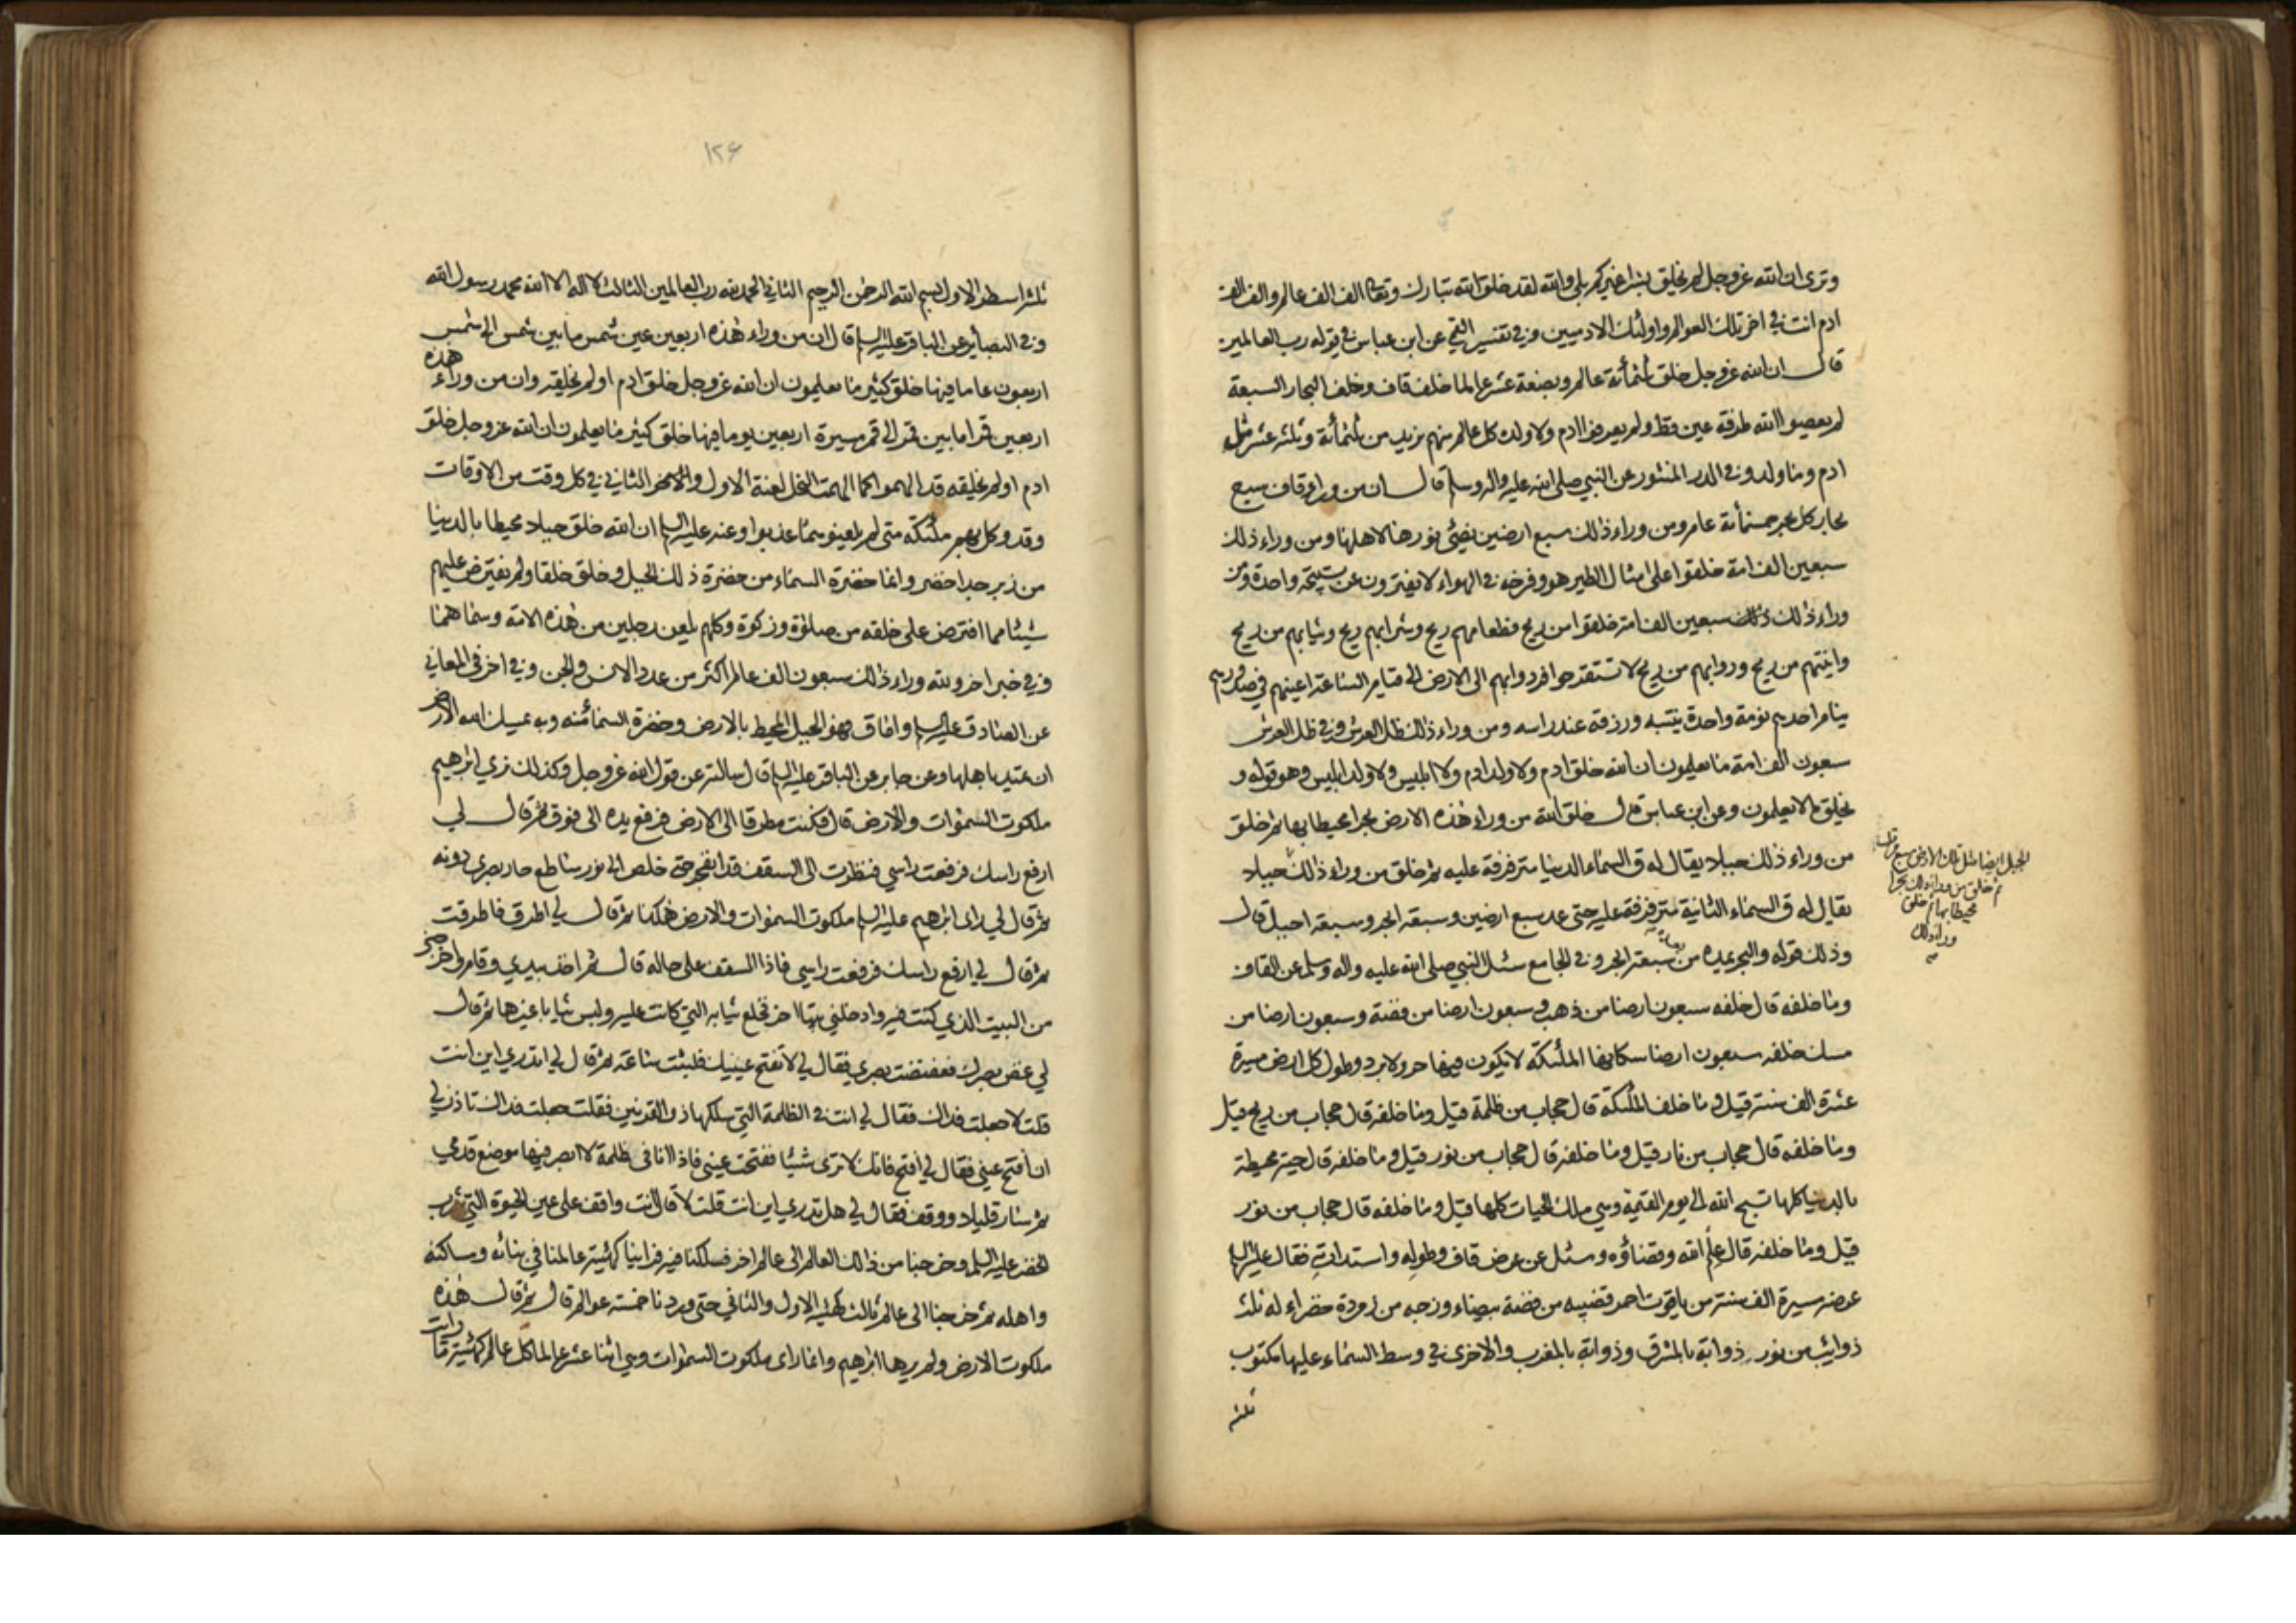 وترى ان الله عز وجل لم يخلق بشرا غيركم بلى والله لقد خلق الله تبارك وتعالى الف الف عالم والف الف
ادم انت في اخر تلك العوالم واولئك الادميين وفي تفسير القمي عن ابن عباس في قوله رب العالمين
قال ان الله عز وجل خلق ثلثمأئة عالم وبضعة عشر عالما خلف قاف وخلف البحار السبعة
لم يعصوا الله طرفة عين قط ولم يعرفوا ادم ولا ولده كل عالم منهم يزيد من ثلثمأئة وثلثه عشر مثل
ادم وما ولد وفي الدر المنثور عن النبي صلى الله عليه واله وسلم قال ان من وراء قاف سبع
بحار كل بحر خمسمأئة عام ومن وراء ذلك سبع ارضين يضئي نورها لاهلها ومن وراء ذلك
سبعين الف امة خلقوا على امثال الطير هو وفرخه في الهواء لا يفترون عن تسبيحة واحدة ومن
وراء ذلك سبعين الف امة خلقوا من ريح فطعامهم ريح وشرابهم ريح وثيابهم من ريح
وانيتهم من ريح ودوابهم من ريح لا تستقر حوافر دوابهم الى الارض الى قيام الساعة اعينهم في صدورهم
ينام احدهم نومة واحدة ينتبه ورزقه عند راسه ومن وراء ذلك ظل العرش وفي ظل العرش
سبعون الف امة ما يعلمون ان الله خلق ادم ولا ولد ادم ولا ابليس ولا ولد ابليس وهو قوله و
يخلق ما لا يعلمون وعن ابن عباس قال خلق الله من وراء هذه الارض بحرا محيطا بها ثم خلق
من وراء ذلك جبلا يقال له ق السماء الدنيا مترفرفة عليه ثم خلق من وراء ذلك جبلا
يقال له ق السماء الثانية مترفرفة عليه حتى عد سبع ارضين وسبعة ابحر وسبعة اجبل قال
وذلك قوله والبحر يمده من بعده سبعة ابحر وفي الجامع سئل النبي صلى الله عليه واله وسلم عن القاف
وما خلفه قال خلفه سبعون ارضا من ذهب وسبعون ارضا من فضة وسبعون ارضا من
مسك خلفه سبعون ارضا سكانها الملئكة لا يكون فيها حر ولا برد وطول كل ارض مسيرة
عشرة الف سنة قيل وما خلف الملئكة قال حجاب من ظلمة قيل وما خلفه قال حجاب من ريح قيل
وما خلفه قال حجاب من نار قيل وما خلفه قال حجاب من نور قيل وما خلفه قال حية محيطة
بالدنيا كلها تسبح الله الى يوم القيمة وهي ملك الحيات كلها قيل وما خلفه قال حجاب من نور
قيل وما خلفه قال علم الله وقضاؤه وسئل عن عرض قاف وطوله واستدارته فقال عليه السلم
عرضه مسيرة الف سنة من ياقوت احمر قضيبه من فضة بيضاء وزجه من زمردة خضراء له ثلث
ذوائب من نور ذوابة بالمشرق وذوابة بالمغرب والاخرى في وسط السماء عليها مكتوب
ثلثه
الجبل ارضا مثل تلك الارض سبع مرات
ثم خلق من وراء ذلك بحرا
محيطا بها ثم خلق
وراء ذلك
١٢٤
ثلثه اسطر الاول بسم الله الرحمن الرحيم الثاني الحمد لله رب العالمين الثالث لا اله الا الله محمد رسول الله
وفي البصائر عن الباقر عليه السلم قال ان من وراء هذه اربعين عين شمس ما بين شمس الى شمس
اربعون عاما فيها خلق كثير ما يعلمون ان الله عز وجل خلق ادم او لم يخلقه وان من وراء هذه
اربعين قمرا ما بين قمر الى قمر مسيرة اربعين يوما فيها خلق كثير ما يعلمون ان الله عز وجل خلق
ادم او لم يخلقه قد الهموا كما الهمت النحل لعنة الاول والثاني في كل وقت من الاوقات
وقد وكل بهم ملئكة متى لم يلعنوهما عذبوا وعنه عليه السلم ان الله خلق جبلا محيطا بالدنيا
من زبرجد اخضر وانما خضرة السماء من خضرة ذلك الجبل وخلق خلقا ولم يفترض عليهم
شيئا مما افترض على خلقه من صلوة وزكوة وكلهم يلعن رجلين من هذه الامة وسماهما
وفي خبر اخر ولله وراء ذلك سبعون الف عالم اكثر من عدد الانس والجن وفي اخر في المعاني
عن الصادق عليه السلم واما ق فهو الجبل المحيط بالارض وخضرة السماء منه وبه يمسك الله الارض
ان تميد باهلها وعن جابر عن الباقر عليه السلم قال سالته عن قول الله عز وجل وكذلك نري ابرهيم
ملكوت السموات والارض قال فكنت مطرقا الى الارض فرفع يده الى فوق ثم قال لي
ارفع راسك فرفعت راسي فنظرت الى السقف قد انفجر حتى خلص الى نور ساطع حار بصري دونه
ثم قال لي راى ابرهيم عليه السلم ملكوت السموات والارض هكذا ثم قال لي اطرق فاطرقت
ثم قال لي ارفع راسك فرفعت راسي فاذا السقف على حاله قال ثم اخذ بيدي وقام واخرجني
من البيت الذي كنت فيه وادخلني بيتا اخر فخلع ثيابه التي كانت عليه ولبس ثيابا غيرها ثم قال
لي غض بصرك فغضضت بصري فقال لي لا تفتح عينيك فلبثت ساعة ثم قال لي اتدري اين انت
قلت لا جعلت فداك فقال لي انت في الظلمة التي سلكها ذو القرنين فقلت جعلت فداك تاذن لي
ان افتح عيني فقال لي افتح فانك لا ترى شيئا ففتحت عيني فاذا انا في ظلمة لا ابصر فيها موضع قدمي
ثم سار قليلا ووقف فقال لي هل تدري اين انت قلت لا قال انت واقف على عين الحيوة التي شرب
الخضر عليه السلم وخرجنا من ذلك العالم الى عالم اخر فسلكنا فيه فراينا كهيئة عالمنا في بنائه وساكنه
واهله ثم خرجنا الى عالم ثالث كهيئة الاول والثاني حتى وردنا خمسة عوالم قال ثم قال هذه
ملكوت الارض ولم يرها ابرهيم وانما راى ملكوت السموات وهي اثنا عشر عالما كل عالم كهيئة ما رايت